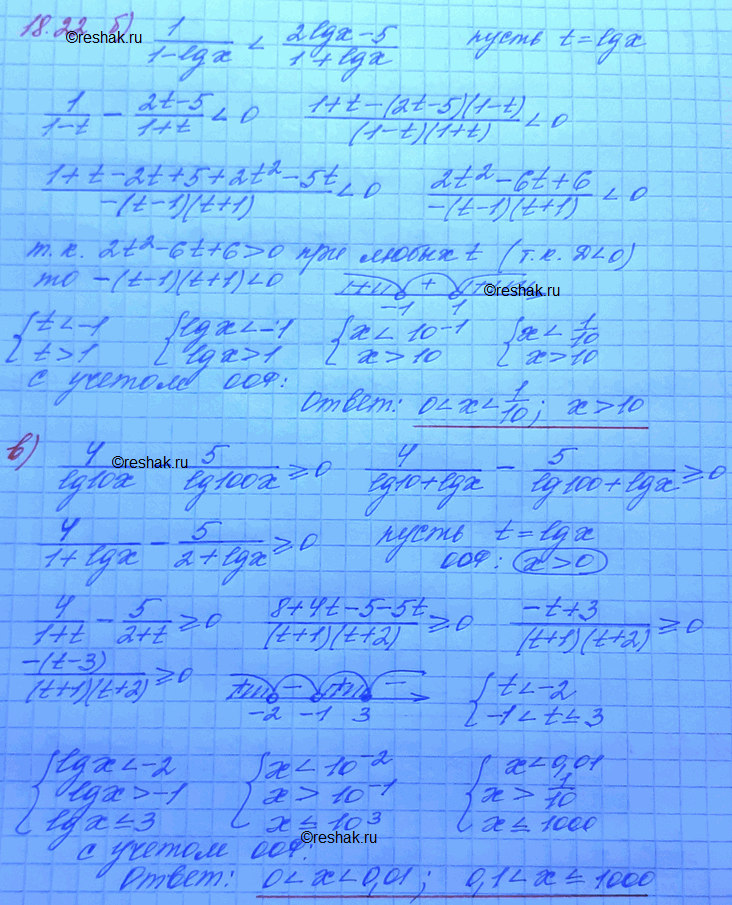 18.22 б) 1/(1-lgx) < (2lgx-5)/(1+lgx) пусть t=lgx
©reshak.ru
1/(1-t) - (2t-5)/(1+t) < 0 (1+t-(2t-5)(1-t))/((1-t)(1+t)) < 0
(1+t-2t+5+2t²-5t)/(-(t-1)(t+1)) < 0 (2t²-6t+6)/(-(t-1)(t+1)) < 0
т.к. 2t²-6t+6>0 при любых t (т.к. D<0)
то -(t-1)(t+1)<0 + -1 1
©reshak.ru
{t<-1 t>1 {lgx<-1 lgx>1 {x<10⁻¹ x>10 {x<1/10 x>10
с учетом ООФ:
Ответ: 0<x<1/10; x>10
в) 4/lg10x - 5/lg100x ≥0 4/(lg10+lgx) - 5/(lg100+lgx) ≥0
©reshak.ru
4/(1+lgx) - 5/(2+lgx) ≥0 пусть t=lgx
ООФ: x>0
4/(1+t) - 5/(2+t) ≥0 (8+4t-5-5t)/((t+1)(t+2)) ≥0 (-t+3)/((t+1)(t+2)) ≥0
-(t-3)/((t+1)(t+2)) ≥0 + - + - -2 -1 3 {t<-2 -1<t≤3
{lgx<-2 lgx>-1 lgx≤3 {x<10⁻² x>10⁻¹ x≤10³ {x<0,01 x>1/10 x≤1000
©reshak.ru
с учетом ООФ:
Ответ: 0<x<0,01; 0,1<x≤1000